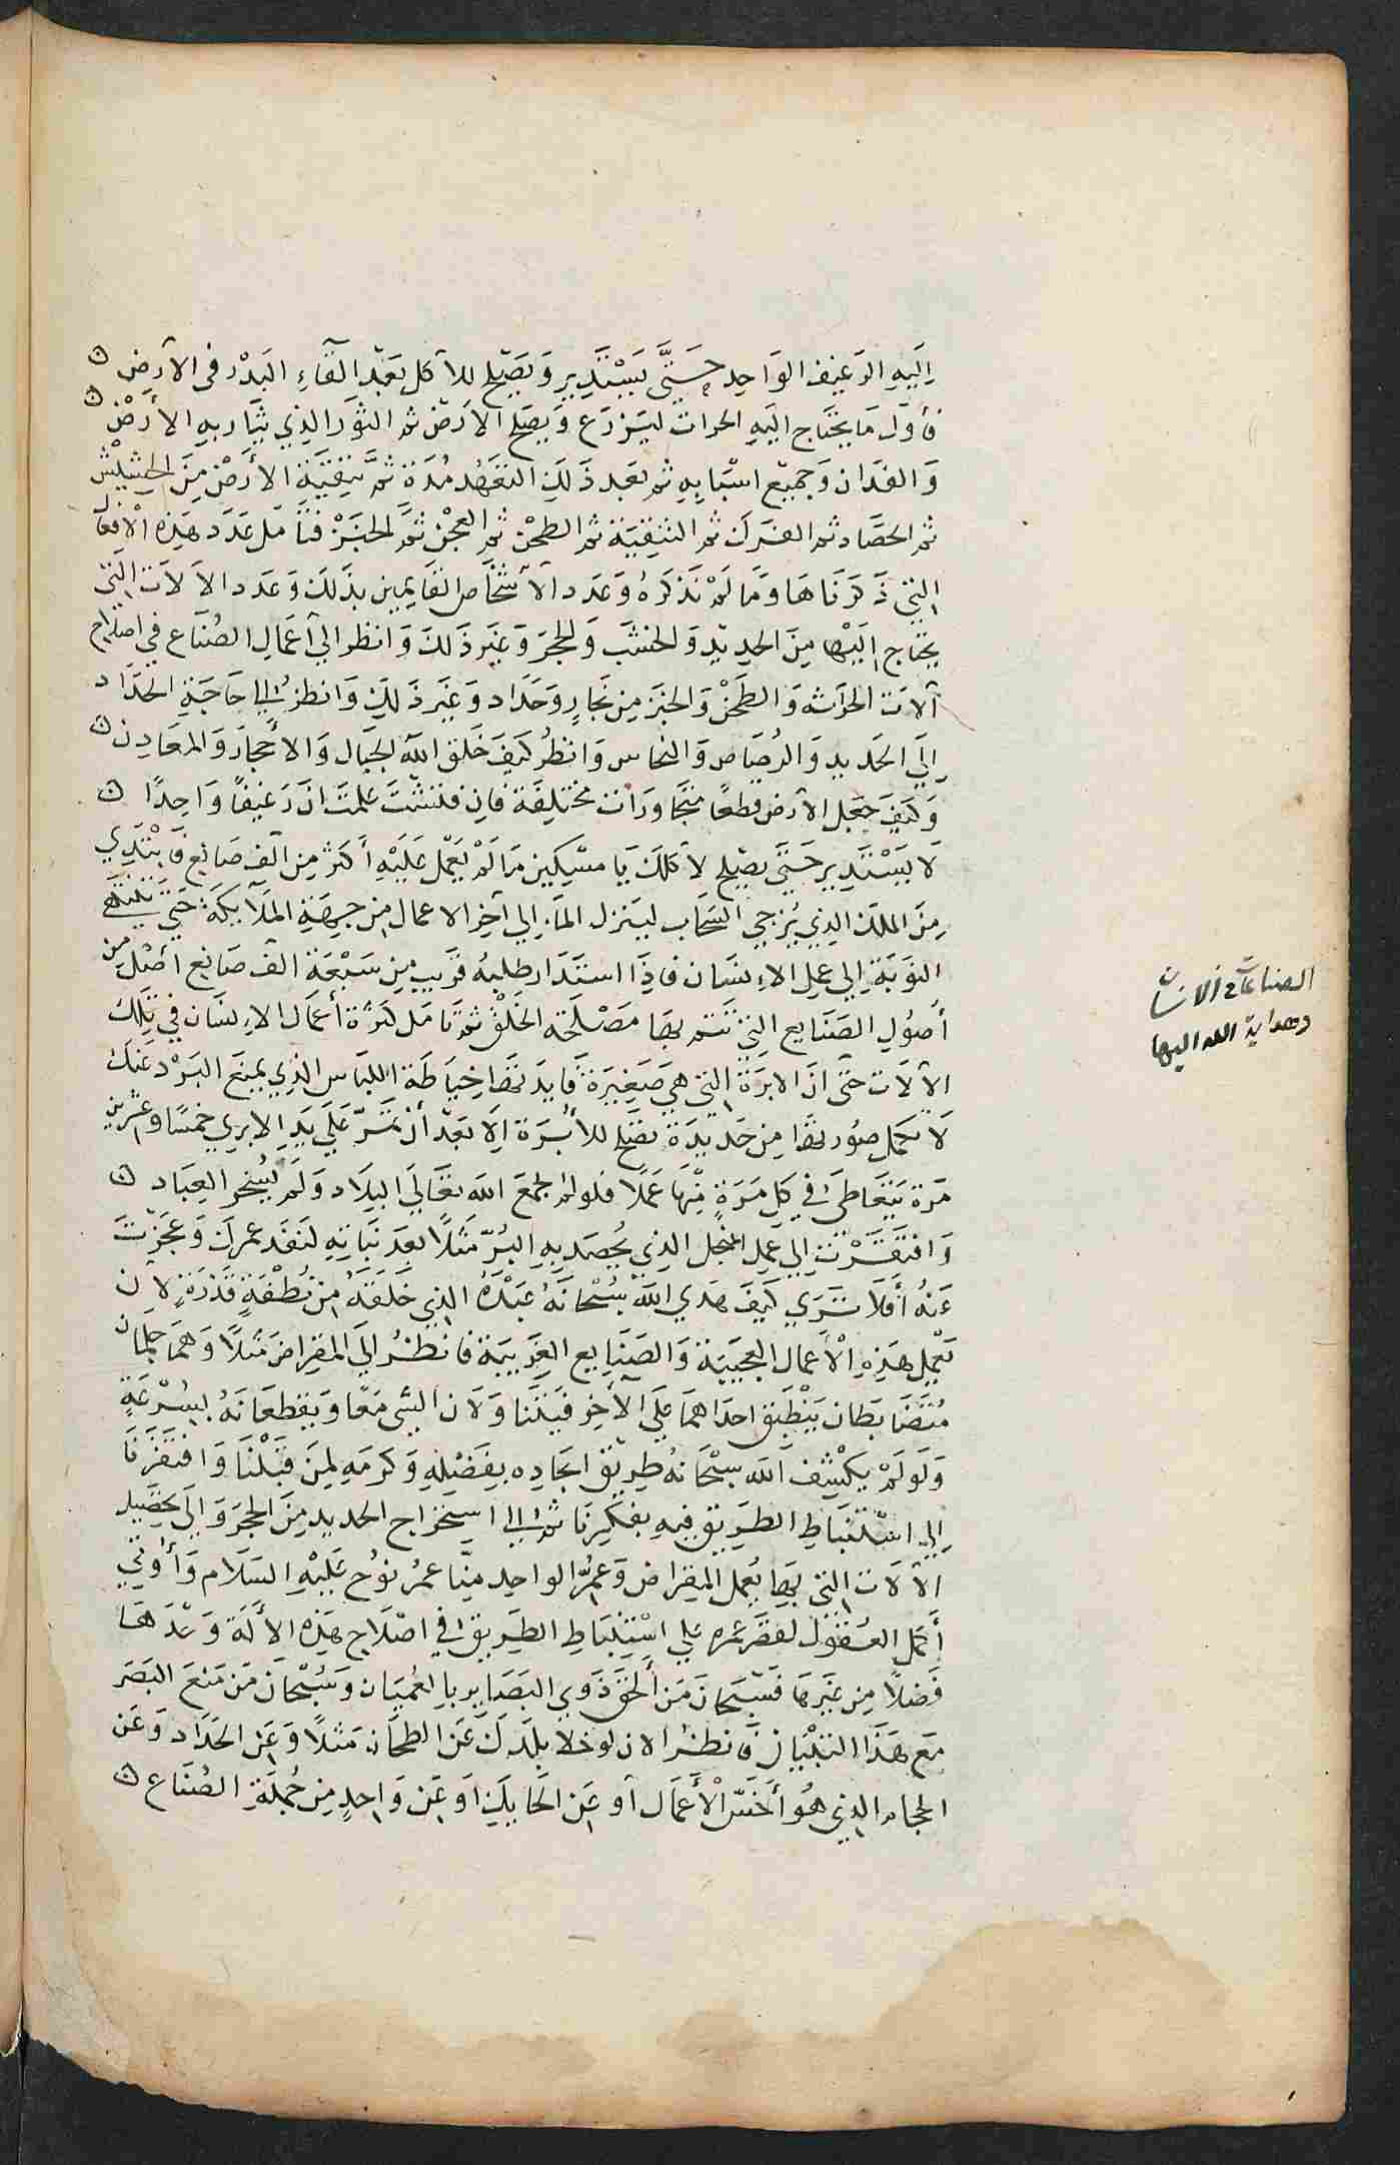 اِلَيهِ الرَغيف الواحِد حَتَّى يَسْتَدِير وَيَصْلح للأكل بَعْد القآءِ البَذْر فى الارض ٥
فأوّل مَا يحتَاج اليَهِ الحراث ليَزرَع وَيصلح الارَض ثم الثَوَر الذِي يثَار بهِ الأرَضْ ٥
وَالفَدان وَجميْع اسْبَابهِ ثم بَعد ذَلكَ التعَهُد مُدَة ثمَّ تنِقيَة الأرَضْ مِنَ الحشيْش
ثم الحصَاد ثم الفَرك ثم التنِقيَة ثم الطحْن ثم العجْن ثمَّ الخَبزْ فتأمَل عَدَد هَذِه الْافعَال
التي ذَكرَنَاهَا وَمَا لمْ نَذكرَهُ وَعَدد الأشخَاص القَايمين بذَلكَ وَعَدد الاَلاَت التي
يحتاج اليَهْا مِنَ الحدِيْدِ وَالخشَب وَالحجَر وَغَير ذَلكَ وَانظر الي أعَمال الصُنَاع في اصلاح
آلاَت الحَرَاثه وَالطَحْن وَالخبَز مِن نجَارٍ وَحَدَاد وَغَير ذَلكِ وَانظر الي حَاجَة الحَدَاد
اِلَي الحَديد وَالرُصَاص وَالنحاس وَانظُر كيَفَ خَلق اللهَ الجِبَال وَالاحجَار وَالمعَادِن ٥
وَكيَفَ جعَل الارض قطعًا متجَاورَات مختلفَة فان فتشتَ علمتَ انَ رَغيفًا وَاحِدًا ٥
لاَ يَسْتَدير حَتىَ يصْلح لأكلكَ يَا مسْكين مَا لَمْ يَعْمَل عَلَيْهِ أكثر مِن الف صَانِع فَابتَدي
مِنَ الملَك الذِي يُزجي السَحَاب ليَنزل المآء الي آخِر الاعمال مِن جهِةَ المَلآيكَة حَتي تنتهَى
النوَبَة الي عمل الاِنسَان فاذَا استَدَار طلبهُ قرَيب مِن سَبْعَة الف صَانِع اصْل مِن
أصُولِ الصَنَايع التي تَتم بهَا مَصْلحَة الخَلْق ثم تأمَل كثرَة أعمَال الاِنسَان في تلِكَ
الآلاَت حتى انَ الابرَة التي هي صَغيرَة فَايدَتهَا خيَاطَة اللبَاس الذِي يمنعَ البَرْد عَنكَ
لاَ تكمل صُورتهَا مِن حَديدَة تصَلح للأبرَة اِلاَ بَعْد أن تمَرّ عَلَي يَدِ الابري خمسًا وعشرين
مَرة يَتعَاطىَ في كل مَرَةٍ مِنْهَا عَمَلًا فلولم يجمَع الله تعَالَي البلَاد وَلمَ يُسخر العِبَاد ٥
وَافتقَرْتَ الي عمل المنجل الذِي يُحصَد بهِ البُرّ مَثَلًا بعد نبَاتهِ لنَفَد عمركَ وَعجَزتَ
عَنهُ أفَلاَ تَرَي كيَفَ هَدي اللهَ سُبْحانَهُ عَبْدَهُ الذِي خَلقَهُ مِن نُطْفَةٍ قَذرَةٍ لان
يَعْمل هَذِه الْأعمَال العجيْبَة وَالصَنَايع الغَريبَة فانظُر الَي المقراض مَثَلًا وَهُمَا جلمان
مُتَضَابطان يَنْطَبق احدَاهمَا عَلَي الأخر فيَتَنَا وَلان الشي مَعًا وَيقطعَانَهُ بسُرْعَةٍ
وَلَو لَمْ يكَشف اللهَ سبْحَانهُ طَريْق اتخَاذِه بفَضْلهِ وَكرَمهِ لمنَ قَبْلنَا وَافتقَرَنَا
الي اسْتنْبَاطِ الطَريق فيهِ بفكرنَا ثم الي استخراج الحديد مِنَ الحجَر وَالَي تحصَيل
الآلات التي بهَا يُعمل المقراض وَعُمِّر الواحِد مِنَّا عمرُ نوُح عَلَيْهِ السَلاَم وَأُوتي
أكمَل العُقوُل لقصَر عمره علي اسْتنبَاطِ الطَريق في اصْلَاح هَذِه الآلَة وَحْدَهَا
فَضلًا مِن غَيرهَا فسُبْحَان مَن ألحقَ ذَوي البصَاير بالعُميَان وَسُبْحَان مَن منَعَ البَصَر
مَع هَذَا التبْيَان فَانظر الان لو خلا بلَدك عَن الطحَان مَثلًا وَعَن الحَدَاد وَعَن
الحجام الذِي هُو أخَسّ الْأعَمَال أو عَن الحَايك اَو عَن وَاحِدٍ مِن جُملَةِ الصُنَاع ٥
الصناعات في الانسان
وهداية الله اليها